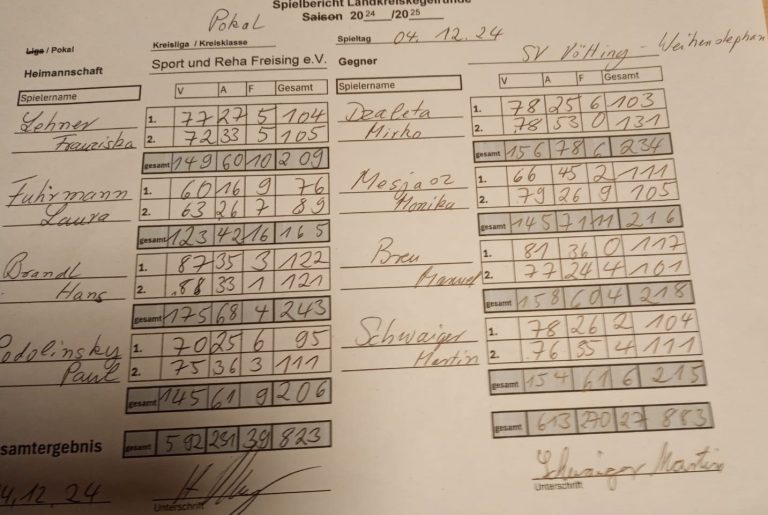 Spielbericht Landkreiskegelrunde
Saison 2024 /2025
Pokal
Liga / Pokal Kreisliga / Kreisklasse Spieltag 04.12.24 SV Vötting - Weihenstephan
Heimmannschaft Sport und Reha Freising e.V. Gegner
Spielername V A F Gesamt Spielername V A F Gesamt
Lehner 1. 77 27 5 104 1. 78 25 6 103
Franziska 2. 72 33 5 105 Mirko 2. 78 53 0 131
gesamt 149 60 10 209 gesamt 156 78 6 234
Fuhrmann 1. 60 16 9 76 1. 66 45 2 111
Laura 2. 63 26 7 89 Monika 2. 79 26 9 105
gesamt 123 42 16 165 gesamt 145 71 11 216
Brandl 1. 87 35 3 122 Breu 1. 81 36 0 117
Hans 2. 88 33 1 121 Manuel 2. 77 24 4 101
gesamt 175 68 4 243 gesamt 158 60 4 218
Podolinsky 1. 70 25 6 95 Schwaiger 1. 78 26 2 104
Paul 2. 75 36 3 111 Martin 2. 76 35 4 111
gesamt 145 61 9 206 gesamt 154 61 6 215
samtergebnis gesamt 592 231 39 823 gesamt 613 270 27 883
4.12.24 Schwaiger Martin
Unterschrift Unterschrift